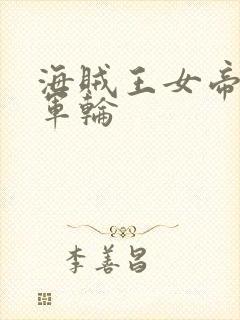 海賊王女帝
軍輪
李善昌